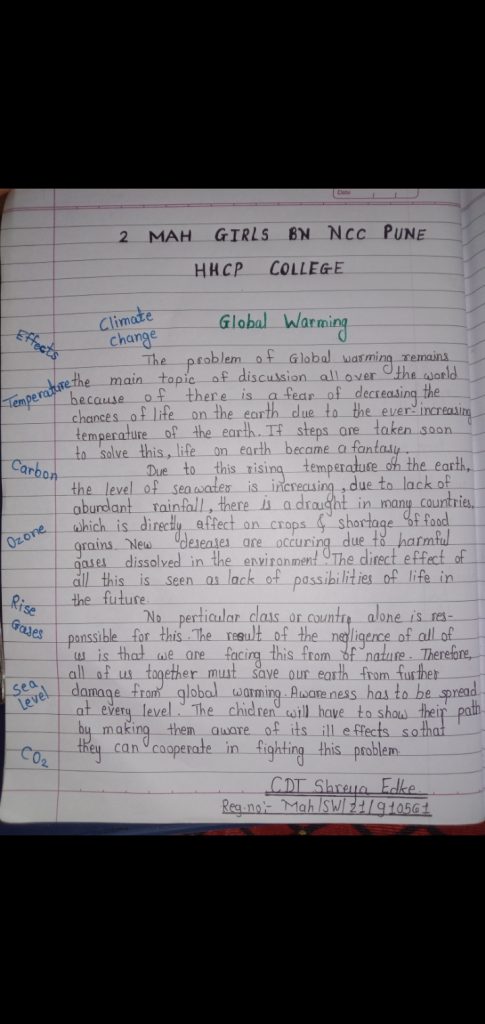 Date
2 MAH GIRLS BN NCC PUNE
HHCP COLLEGE
Effects
Climate change
Global Warming
The problem of Global warming remains
Temperature
the main topic of discussion all over the world
because of there is a fear of decreasing the
chances of life on the earth due to the ever-increasing
temperature of the earth. If steps are taken soon
to solve this, life on earth became a fantasy.
Carbon
Due to this rising temperature on the earth,
the level of sea water is increasing, due to lack of
abundant rainfall, there is a draught in many countries,
which is directly affect on crops & shortage of food
Ozone
grains. New deseases are occuring due to harmful
gases dissolved in the environment. The direct effect of
all this is seen as lack of possibilities of life in
the future.
Rise
Gases
No perticular class or country alone is res-
ponssible for this. The result of the negligence of all of
us is that we are facing this from of nature. Therefore,
all of us together must save our earth from further
Sea
Level
damage from global warming. Awareness has to be spread
at every level. The chidren will have to show their path
by making them aware of its ill effects so that
they can cooperate in fighting this problem
CO2
CDT Shreya Edke.
Reg.no:- Mah/SW/21/910561